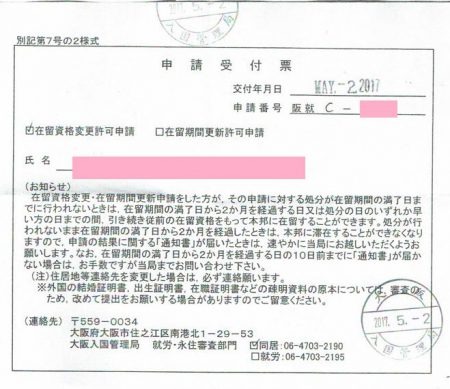 2017.5.-2
入国管理局
別記第7号の2様式
申請受付票
交付年月日 MAY.-2.2017
申請番号 阪就 C -
☑在留資格変更許可申請 □在留期間更新許可申請
氏名
(お知らせ)
在留資格変更・在留期間更新申請をした方が、その申請に対する処分が在留期間の満了日ま
でに行われないときは、在留期間の満了日から2か月を経過する日又は処分の日のいずれか早
い方の日までの間、引き続き従前の在留資格をもって本邦に在留することができます。処分が行
われないまま在留期間の満了日から2か月を経過したときは、本邦に滞在することができなくなり
ますので、申請の結果に関する「通知書」が届いたときは、速やかに当局にお越しいただくようお
願いします。なお、在留期間の満了日から2か月を経過する日の10日前までに「通知書」が届か
ない場合は、お手数ですが当局までお問い合わせ下さい。
(注)住居地等連絡先を変更した場合は、必ず連絡願います。
※外国の結婚証明書、出生証明書、在職証明書などの疎明資料の原本については、審査のた
め、改めて提出をお願いする場合がありますのでご留意ください。
(連絡先) 〒559-0034
大阪府大阪市住之江区南港北1-29-53
大阪入国管理局 就労・永住審査部門 ☑同居:06-4703-2190
□就労:06-4703-2195
2017.5.-2
入国管理局